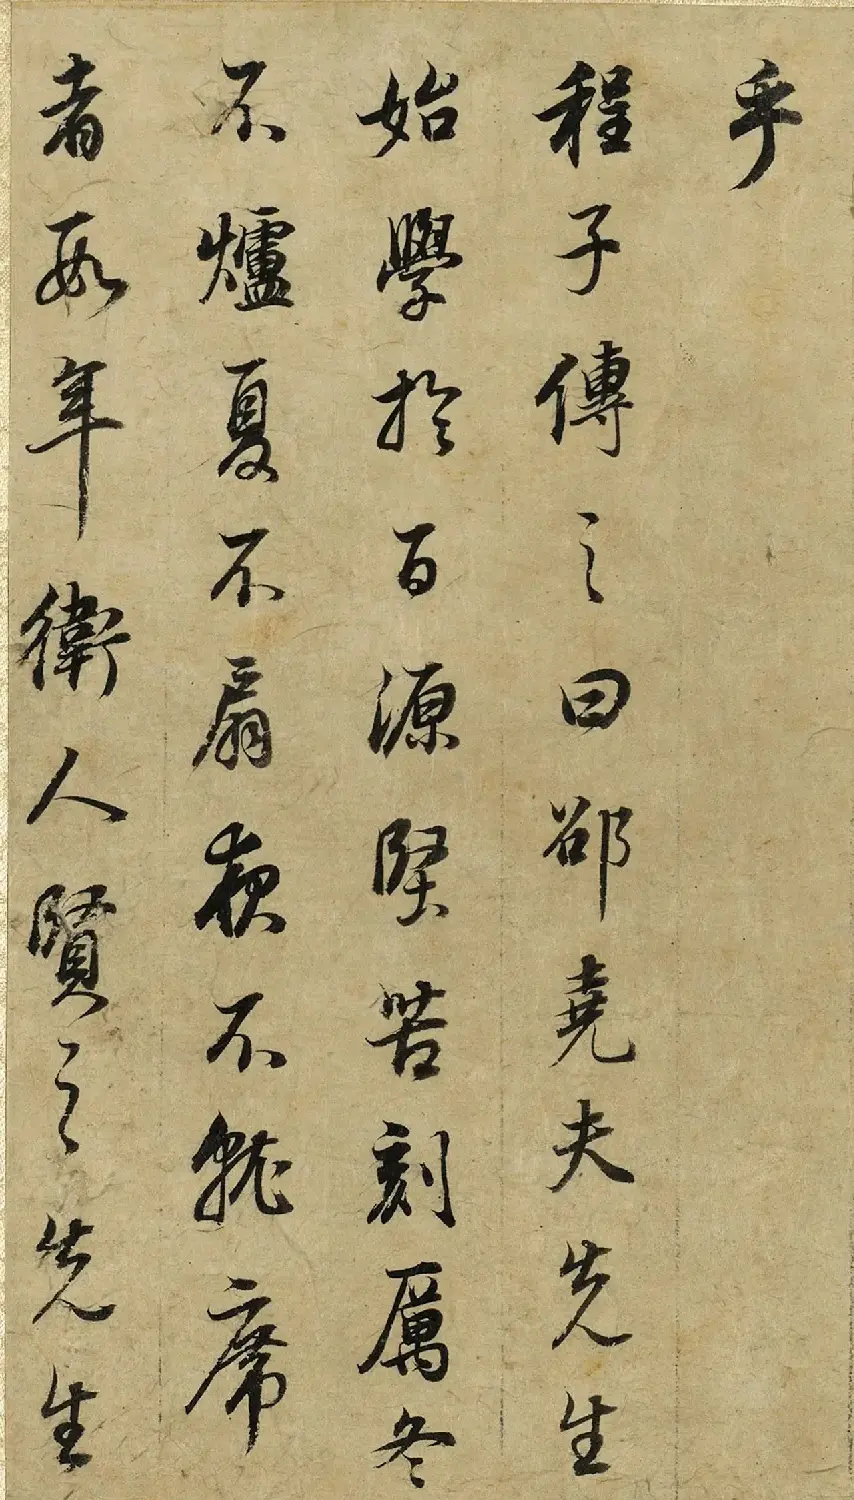 乎
程子傳之曰邵堯夫先生
始學於百源堅苦刻厲冬
不爐夏不扇夜不就席
者數年衛人賢之先生